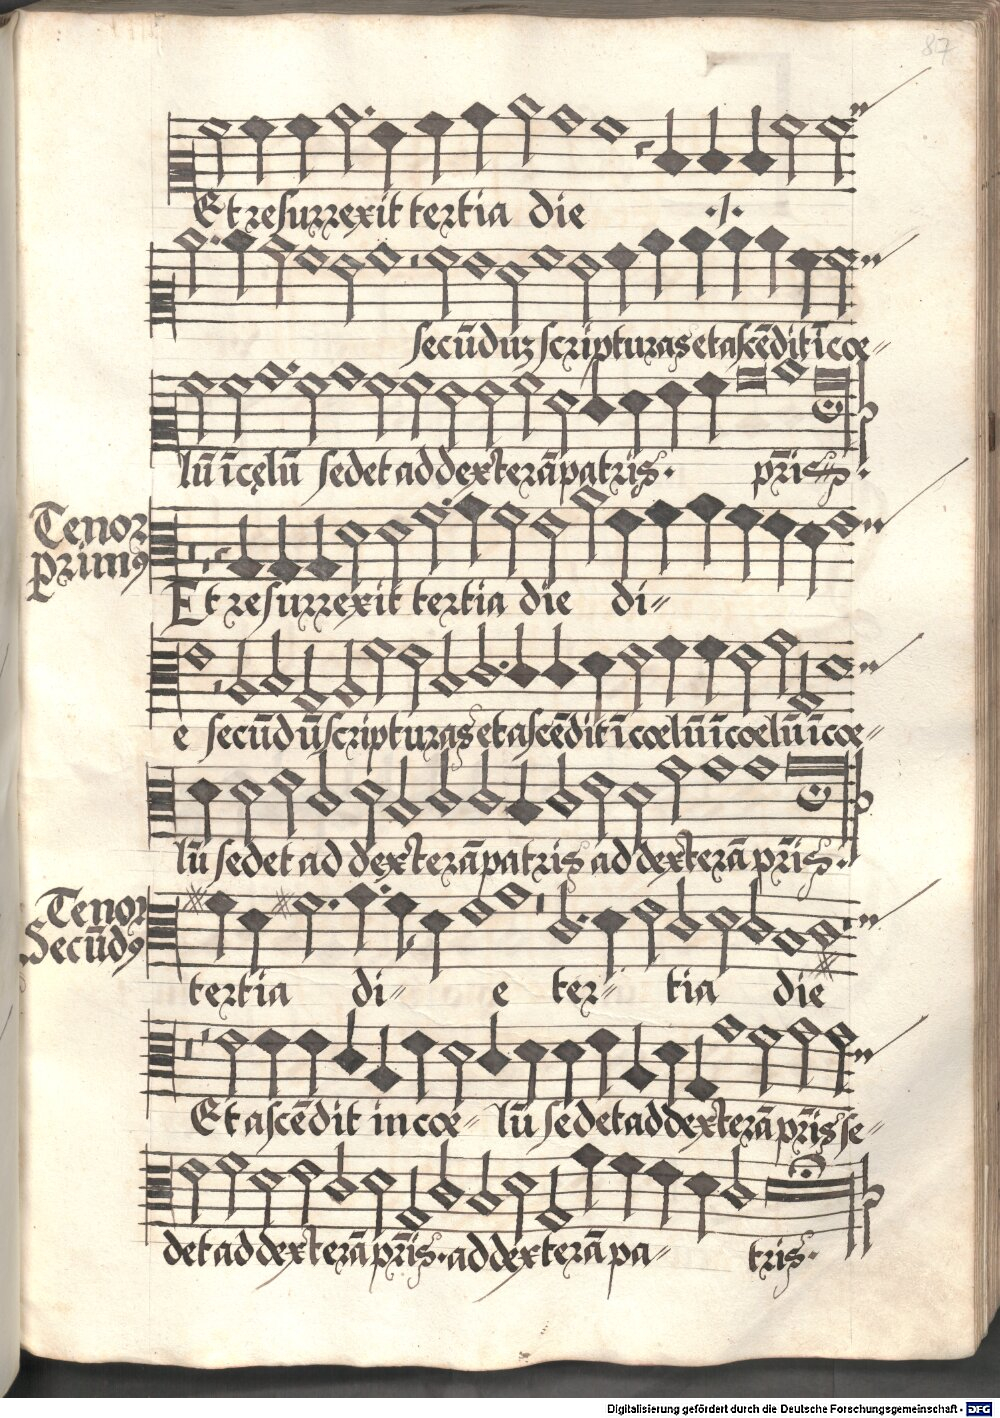 87
Et resurrexit tertia die ./.
secūduz scripturas et ascēdit ī cœ=
lū ī cęlū sedet ad dexterā patris. pr̄is.
Tenor
primꝰ
Et resurrexit tertia die di=
e secūdū scripturas et ascēdit ī cœlū ī cœlū ī cœ=
lū sedet ad dexterā patris ad dexterā pr̄is.
Tenor
Secūdꝰ
tertia di= e ter= tia die
Et ascēdit in cœ= lū sedet ad dexterā pr̄is se=
det ad dexterā pr̄is. ad dexterā pa= tris.
Digitalisierung gefördert durch die Deutsche Forschungsgemeinschaft - DFG